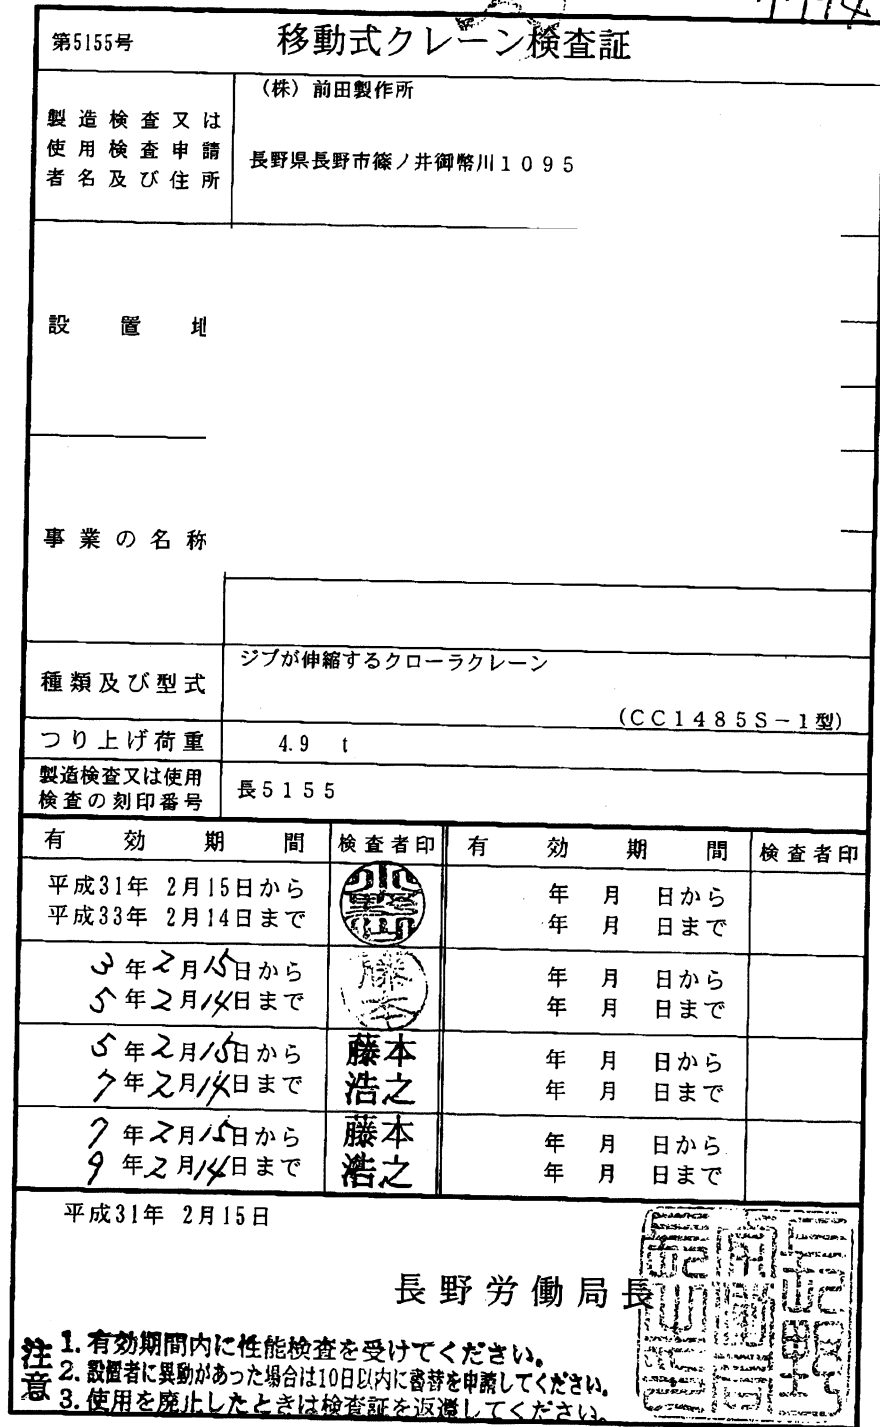 第5155号
移動式クレーン検査証
製造検査又は
使用検査申請
者名及び住所
(株)前田製作所
長野県長野市篠ノ井御幣川1095
設置地
事業の名称
種類及び型式
ジブが伸縮するクローラクレーン
(CC1485S-1型)
つり上げ荷重
4.9 t
製造検査又は使用
検査の刻印番号
長5155
有効期間 検査者印 有効期間 検査者印
平成31年 2月15日から 年 月 日から
平成33年 2月14日まで 年 月 日まで
3年2月15日から 藤 年 月 日から
5年2月14日まで 本 年 月 日まで
5年2月15日から 藤本 年 月 日から
7年2月14日まで 浩之 年 月 日まで
7年2月15日から 藤本 年 月 日から
9年2月14日まで 浩之 年 月 日まで
平成31年 2月15日
長野労働局長
注意
1. 有効期間内に性能検査を受けてください。
2. 設置者に異動があった場合は10日以内に書替を申請してください。
3. 使用を廃止したときは検査証を返還してください。